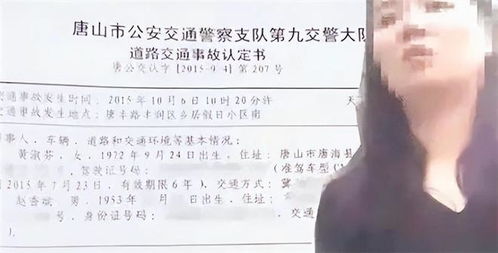 唐山市公安交通警察支队第九交警大队
道路交通事故认定书
唐公交认字[2015-9-4]第207号
交通事故发生时间：2015年10月6日10时20分许 天
交通事故发生地点：唐丰路丰润区乡居假日小区南
事人、车辆、道路和交通环境等基本情况：
黄淑芬，女，1972年9月24日出生，住址：唐山市唐海县
驾驶证号码： (准驾车型(
2015年7月23日，有效期限6年)，交通方式：冀
赵香斌，男，1953年 月 日出生，住址：
号，身份证号码： 交通